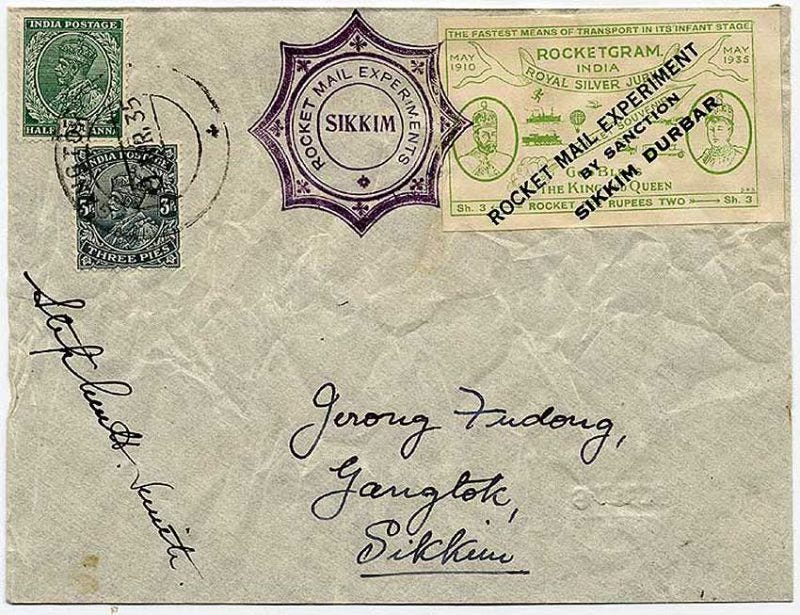 INDIA POSTAGE
HALF ANNA
INDIA POSTAGE
3P 3P
THREE PIES
35
ROCKET MAIL EXPERIMENTS
SIKKIM
THE FASTEST MEANS OF TRANSPORT IN ITS INFANT STAGE
ROCKETGRAM.
INDIA
MAY
1910
MAY
1935
ROYAL SILVER JUB
SOUVENIR
ROCKET MAIL EXPERIMENT
BY SANCTION
SIKKIM DURBAR
GOD BL
THE KING QUEEN
Sh. 3 ROCKET RUPEES TWO Sh. 3
Stephen H. Smith.
Jerong Fudong,
Gangtok,
Sikkim